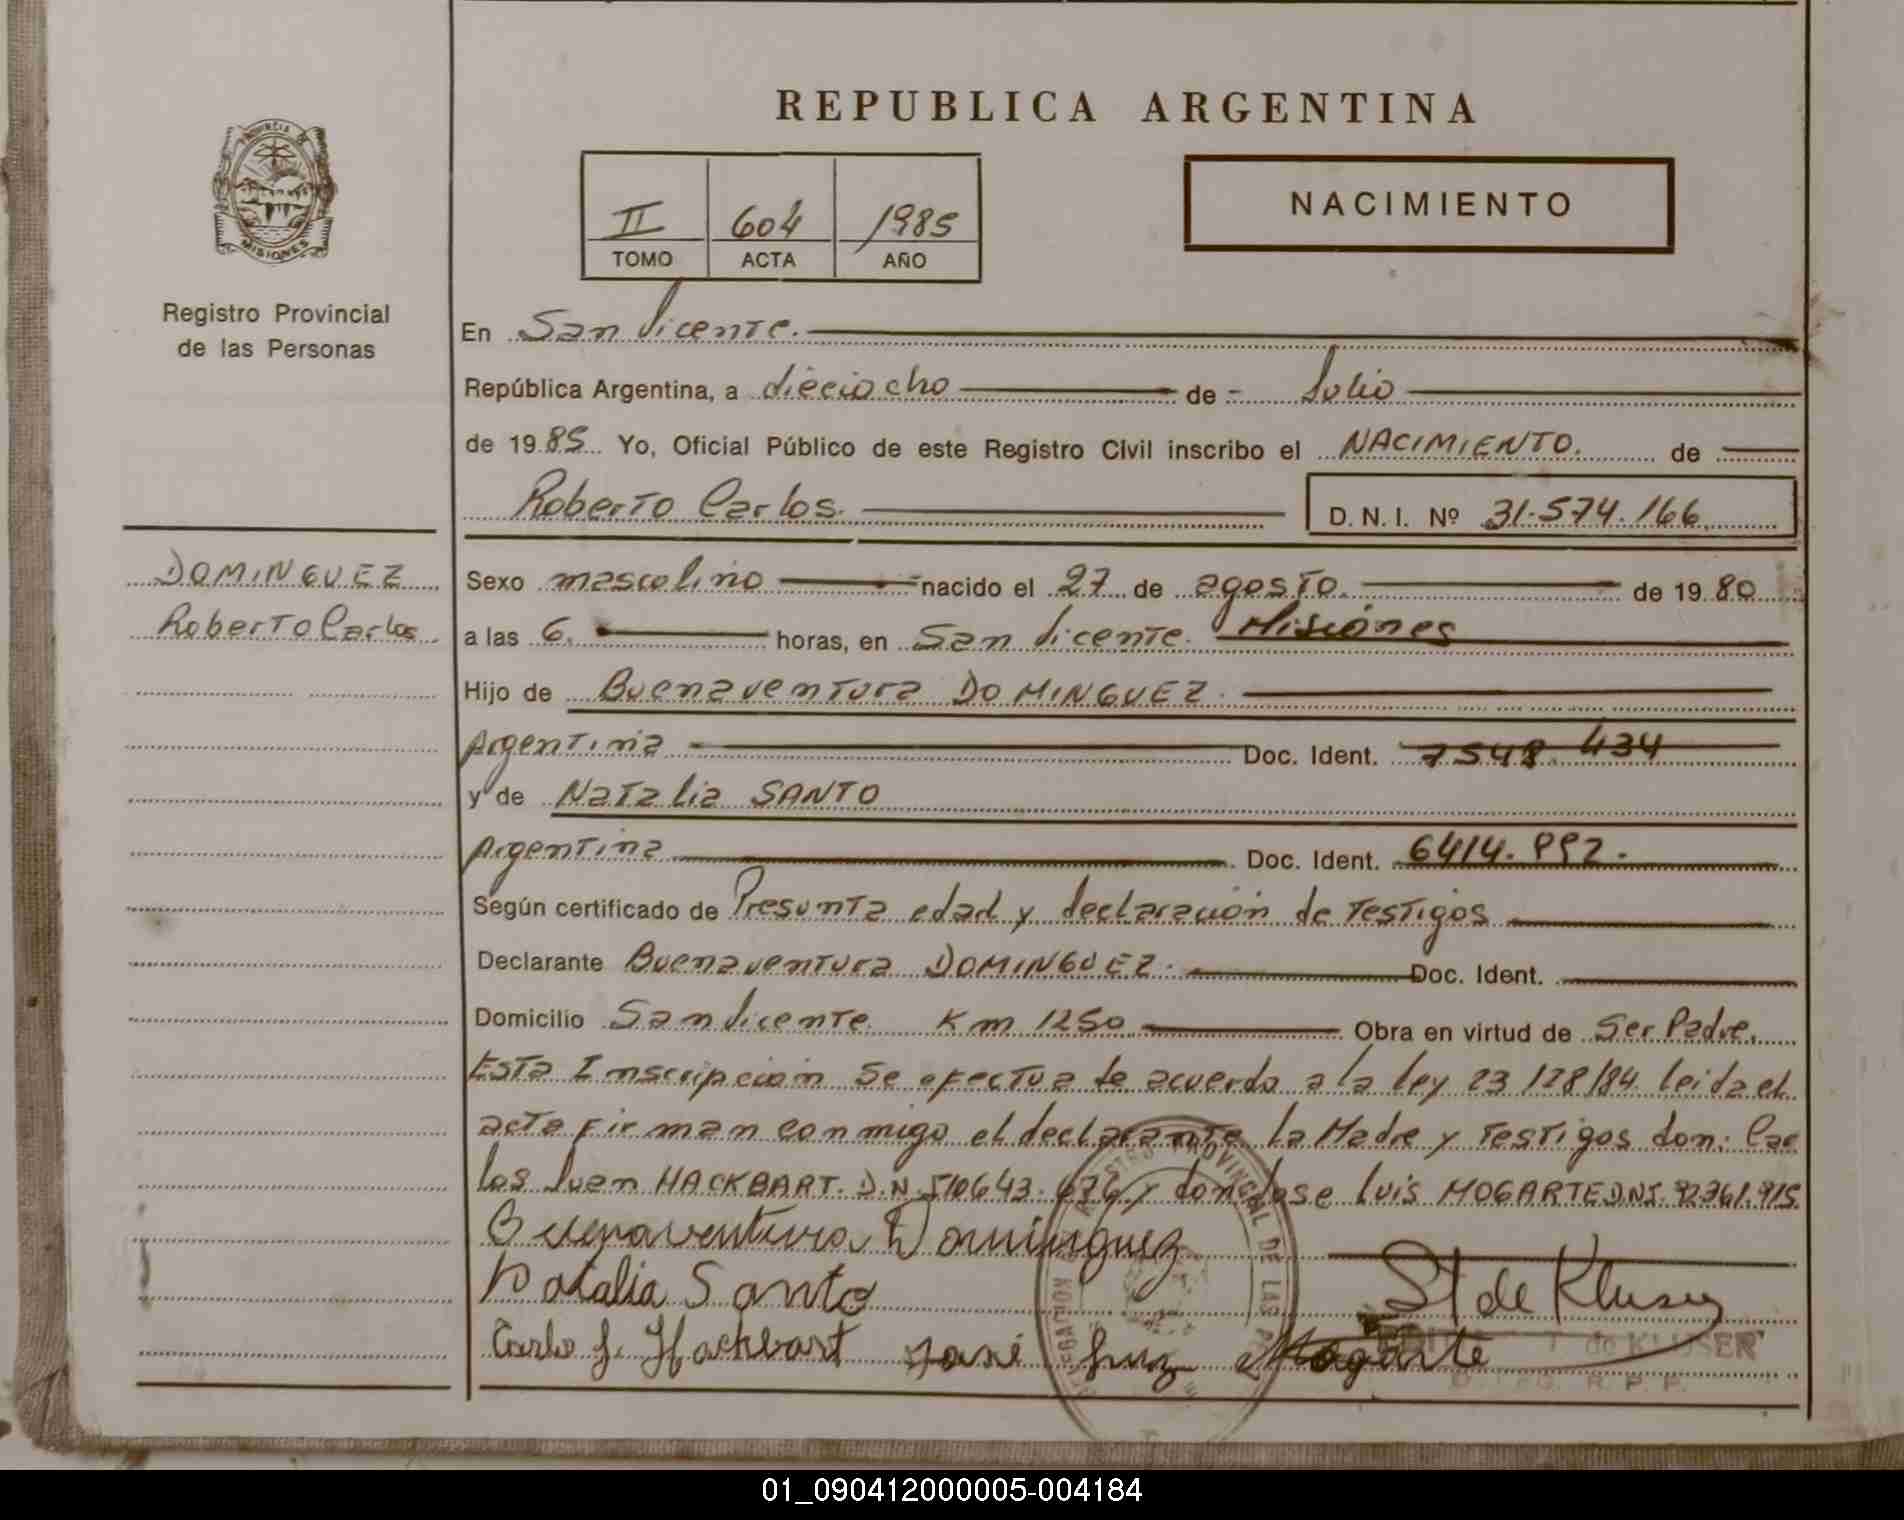 REPUBLICA ARGENTINA
PROVINCIA DE
MISIONES
Registro Provincial
de las Personas
II 604 1985
TOMO ACTA AÑO
NACIMIENTO
En San Vicente.
República Argentina, a dieciocho de - Julio
de 1985 Yo, Oficial Público de este Registro Civil inscribo el NACIMIENTO. de
Roberto Carlos.
D. N. I. Nº 31.574.166
DOMINGUEZ
Roberto Carlos
Sexo masculino nacido el 27 de agosto. de 1980
a las 6. horas, en San Vicente. Misiones
Hijo de Buenaventura DOMINGUEZ.
Argentina Doc. Ident. 7548.434
y de Natalia SANTO
Argentina Doc. Ident. 6414.992.
Según certificado de Presunta edad y declaración de Testigos
Declarante Buenaventura DOMINGUEZ. Doc. Ident.
Domicilio San Vicente Km 1250 Obra en virtud de Ser Padre.
Esta Inscripción Se efectua de acuerdo a la ley 23128/84. leida el
acta firman conmigo el declarante la Madre y Testigos don: Car
los Juan HACKBART. D.N.I 10643.676 y don Jose Luis MOGARTE D.N.I. 92361.915
Buenaventura Dominguez
Natalia Santo St de Kluser
Carlo J. Hackbart José Luiz Mogarte
de KLUSER
R. P. P.
REGISTRO PROVINCIAL DE LAS
01_090412000005-004184